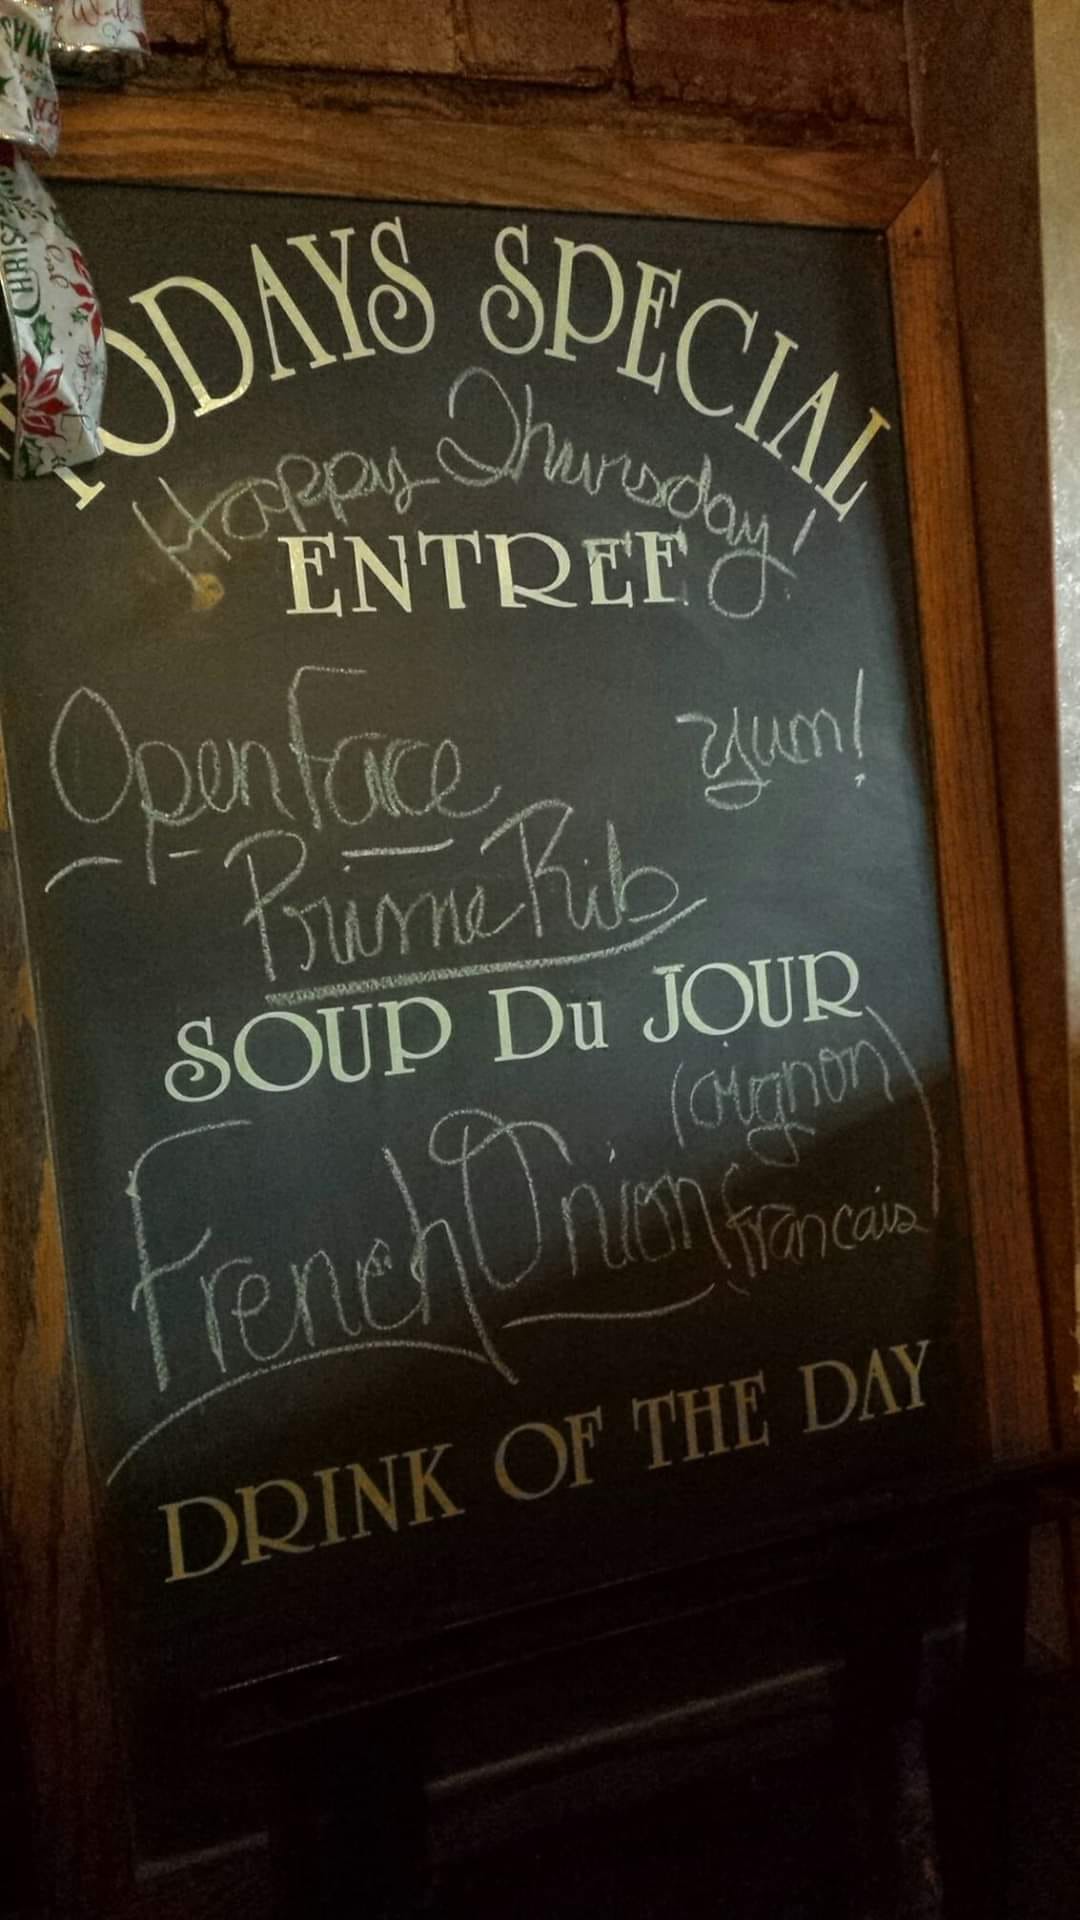 TODAYS SPECIAL
Happy Thursday!
ENTREE
Open Face
yum!
Prime Rib
SOUP Du JOUR
(oignon)
French Onion
(francais)
DRINK OF THE DAY
CHRIS